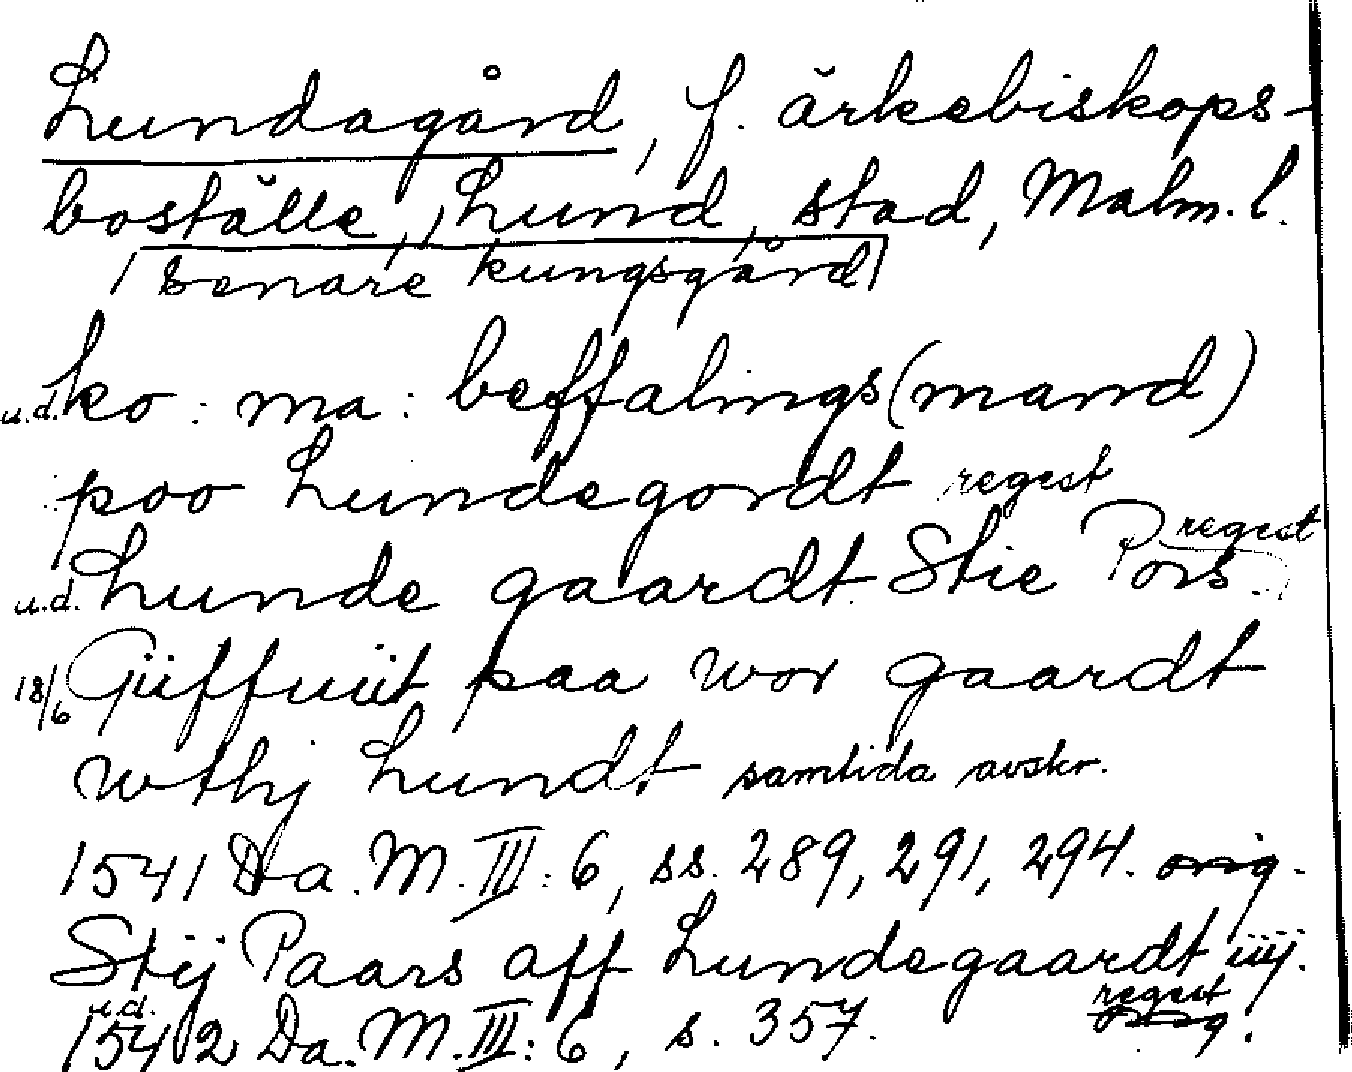 Lundagård, f. ärkebiskops-
boställe, Lund, stad, Malm. l.
senare kungsgård
u.d. ko: ma: beffalings(mand)
poo Lundegordt regest
u.d. Lunde gaardt. Stie Pors. regest
18/6 Güffuüt paa wor gaardt
wthj Lundt samtida avskr.
1541 Da. M. III: 6, ss. 289, 291, 294. orig.
Stij Paars aff Lundegaardt iiij.
u.d. regest
1542 Da. M. III: 6, s. 357. orig.